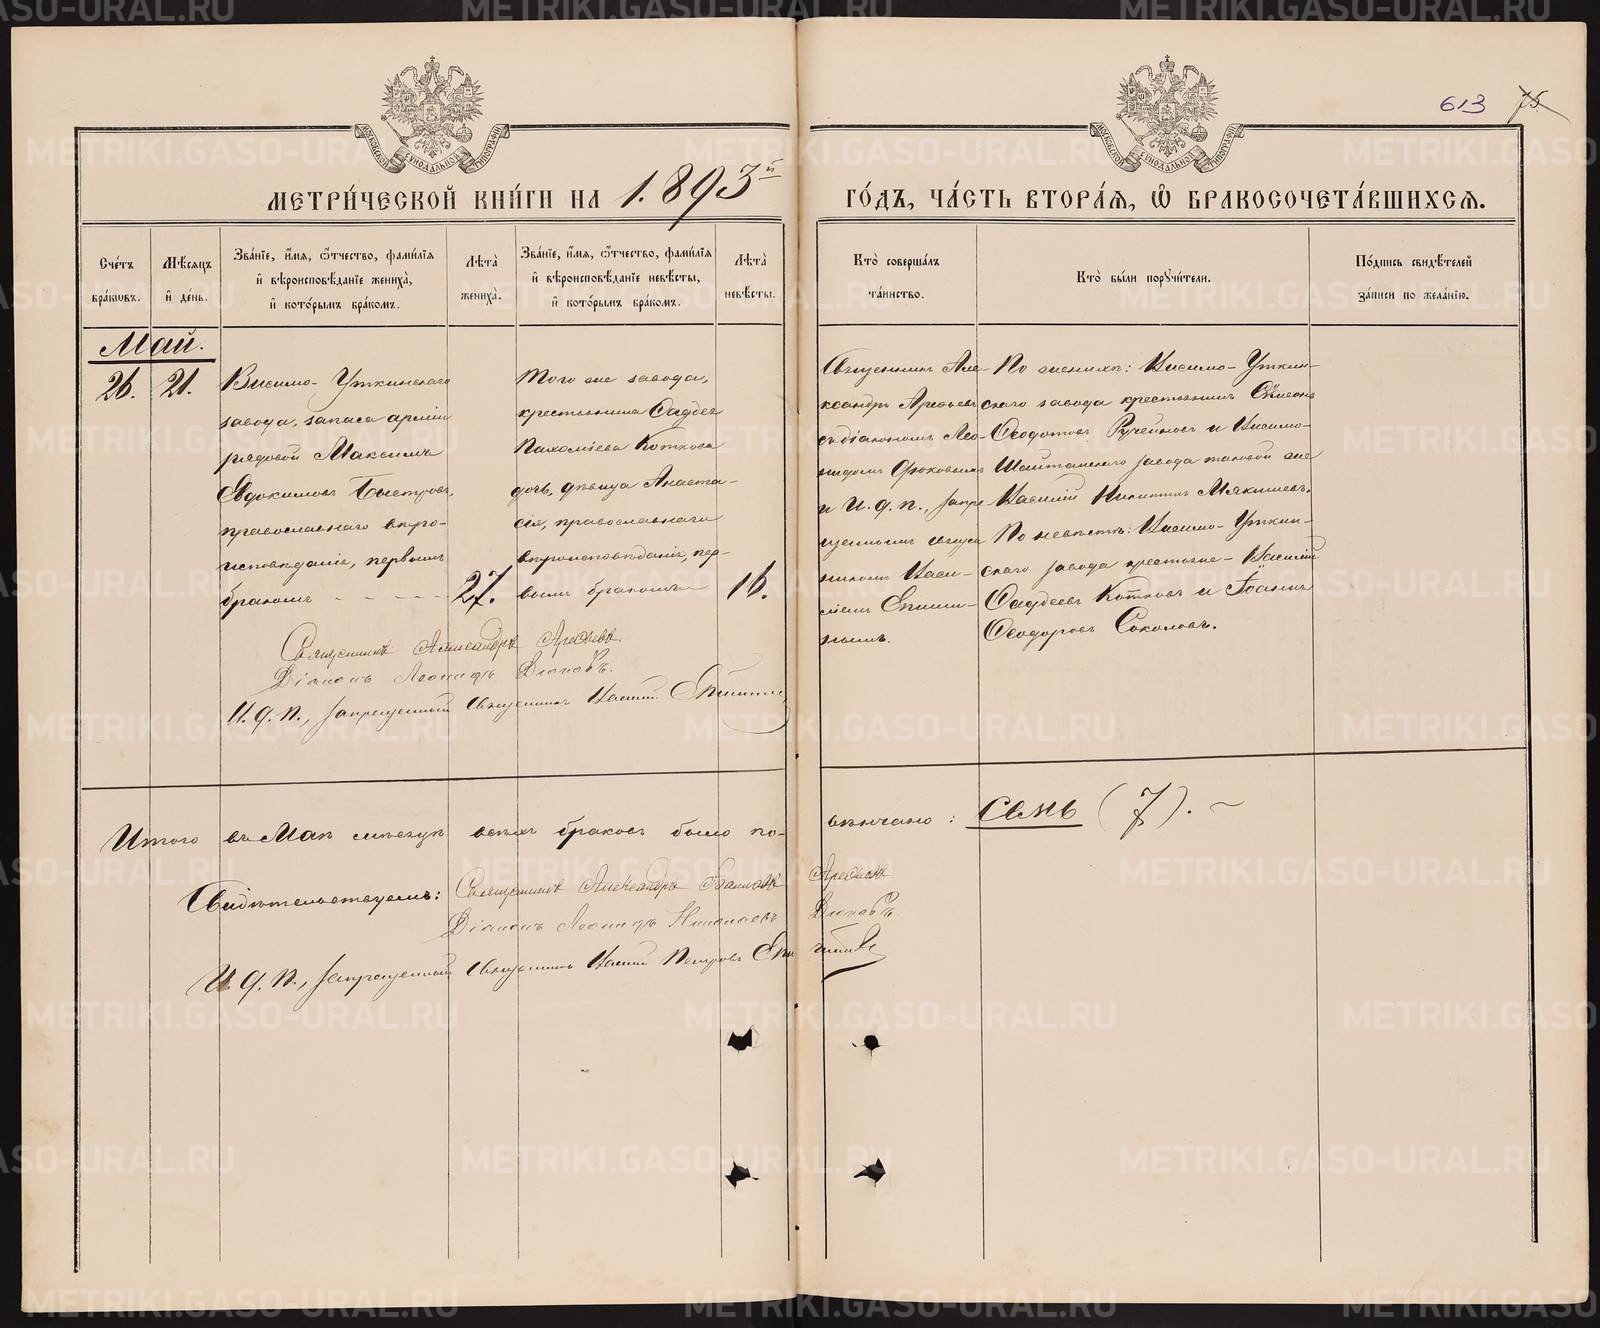 613 75.
МЕТРИ́ЧЕСКОЙ КНИ́ГИ НА 1.893й
ГО́ДЪ, ЧА́СТЬ ВТОРА́Я, Ѿ БРАКОСОЧЕТА́ВШИХСЯ.
Сче́тъ бра́ковъ.
Мѣ́сяцъ и де́нь.
Зва́нїе, и́мя, ѻ҆́тчество, фами́лїя и вѣроисповѣ́данїе жениха̀, и кото́рымъ бра́комъ.
Лѣ́та жениха̀.
Зва́нїе, и́мя, ѻ҆́тчество, фами́лїя и вѣроисповѣ́данїе невѣ́сты, и кото́рымъ бра́комъ.
Лѣ́та невѣ́сты.
Кто̀ соверша́лъ та́инство.
Кто̀ бы́ли поручи́тели.
По́дпись свидѣ́телей за́писи по жела́нїю.
Май.
26.
21.
Висимо-Уткинскаго
завода, запаса арміи
рядовой Максимъ
Евдокимовъ Быстровъ,
православнаго вѣро-
исповѣданія, первымъ
бракомъ
27.
Того же завода,
крестьянина Фаддея
Пахоміева Коткова
дочь, дѣвица Анаста-
сія, православнаго
вѣроисповѣданія, пер-
вымъ бракомъ
16.
Священникъ Але-
ксандръ Арефьевъ
съ діакономъ Лео-
нидомъ
и И. д. п., запре-
щеннымъ священ-
никомъ Васи-
ліемъ
По женихѣ: Висимо-Уткин-
скаго завода крестьянинъ Симеонъ
Ѳеодотовъ Ручейковъ и Висимо-
Шайтанскаго завода таковой же
Василій Никитинъ Мякишевъ.
По невѣстѣ: Висимо-Уткин-
скаго завода крестьяне - Василій
Фаддеевъ Котковъ и Іоаннъ
Ѳеодоровъ Соколовъ.
Священникъ Александръ Арефьевъ.
Діаконъ Леонидъ
И. д. п., запрещенный священникъ Василій
Итого въ Маѣ мѣсяцѣ всѣхъ браковъ было по-вѣнчано: семь (7).
Свидѣтельствуемъ: Священникъ Александръ Іоанновъ Арефьевъ
Діаконъ Леонидъ Николаевъ
И. д. п., запрещенный священникъ Василій Петровъ
METRIKI.GASO-URAL.RU